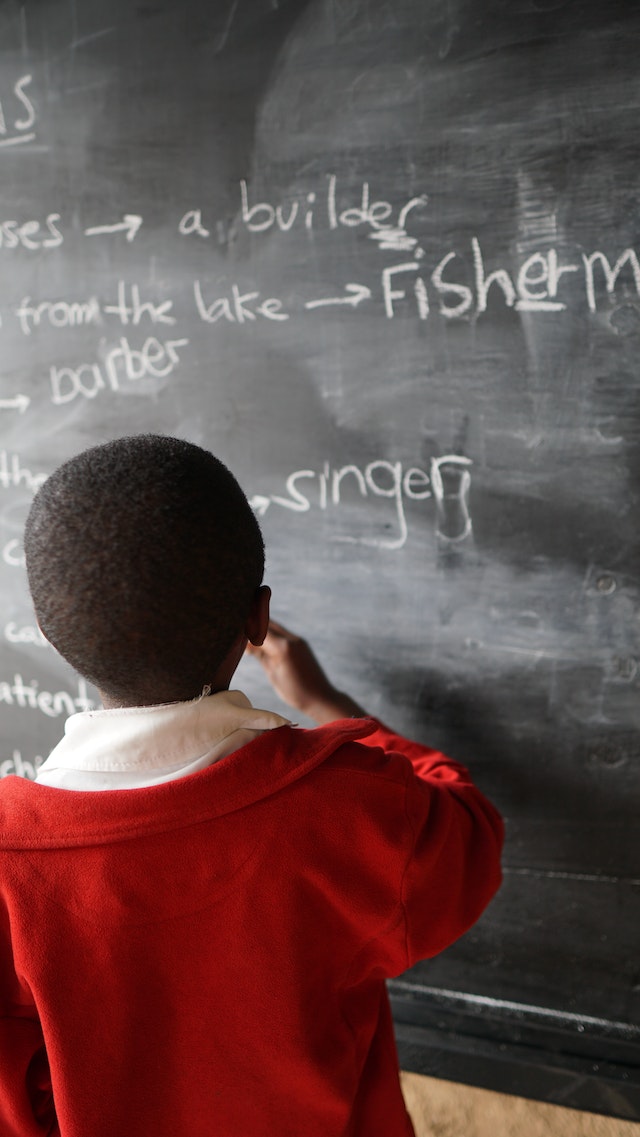 ns
ses → a builder
from the lake → Fisherm
→ barber
the → singer
ca
atient
chi